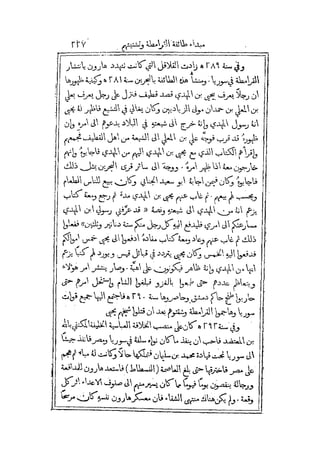 مبداء طائفة القرامطة وتشتيتهم ٢٢٧
وفي سنة ٢٨٩ هـ زادت القلاقل التي كانت تهدد هارون بانتشار
القرامطة في سوريا. ومنشأ هذه الطائفة بالبحرين سنة ٢٨١ هـ وكيفية ظهورها
ان رجلاً يعرف بيحيى بن المهدي قصد قطيف فنزل على رجل يعرف بعلي
بن المعلي بن حمدان مولى الزياديين وكان يغالي في التشيع فاظهر له يحيى
انه رسول المهدي وانه خرج الى شيعته في البلاد يدعوهم الى امره وان
ظهوره قد قرب فوجه علي بن المعلي الى الشيعة من اهل القطيف فجمعهم
واقرأهم الكتاب الذي مع يحيى بن المهدي اليهم من المهدي فاجابوه وانهم
خارجون معه اذا ظهر امره. ووجه الى سائر قرى البحرين بمثل ذلك
فاجابوه وكان فيمن اجابه ابو سعيد الجنابي وكان يبيع للناس الطعام
ويحسب لهم بيعهم. ثم غاب عنهم يحيى بن المهدي مدة ثم رجع ومعه كتاب
يزعم انه من المهدي الى شيعته ونصه « قد عرفني رسولي ابن المهدي
مسارعتكم الى امري فليدفع اليه كل رجل منكم ستة دنانير وثلثين » ففعلوا
ذلك ثم غاب عنهم وعاد ومعه كتاب مفاده ادفعوا الى يحيى خمس اموالكم
فدفعوا اليه الخمس وكان يحيى يتردد في قبائل قيس ويورد لهم كتباً يزعم
انها من المهدي وانه ظاهر فيكونون على اهبة. وصار ينتشر امر هؤلاء
ويتعاظم عددهم حتى طمعوا بالغزو فبلغوا الشام واستفحل امرهم حتى
حاربوا طغج حاكم دمشق وحاصروها سنة ٢٩٠ هـ فاجتمع اليها جميع قوات
سوريا وهاجموا القرامطة وشتتوهم بعد ان قتلوا شيخهم يحيى
وفي سنة ٢٩٢ هـ كان على منصب الخلافة العباسية الخليفة المكتفي بالله
بن المعتضد فاحب ان ينقذ ما كان نواه سلفه في سوريا ومصر فانفذ جيشاً
الى سوريا تحت قيادة محمد بن سليمان فتملكها حالاً وكانت له مباء ثم هجم
على مصر فاخترقها حتى بلغ العاصمة (الفسطاط) فاستعد هارون للمدافعة
ورجاله ينقصون يوماً فيوماً بما كان يسير منهم الى صفوف الاعداء اثر كل
وقعة. ولم يكن هناك منتهى الشقاء فان معسكر هارون نفسه كان مرسحاً